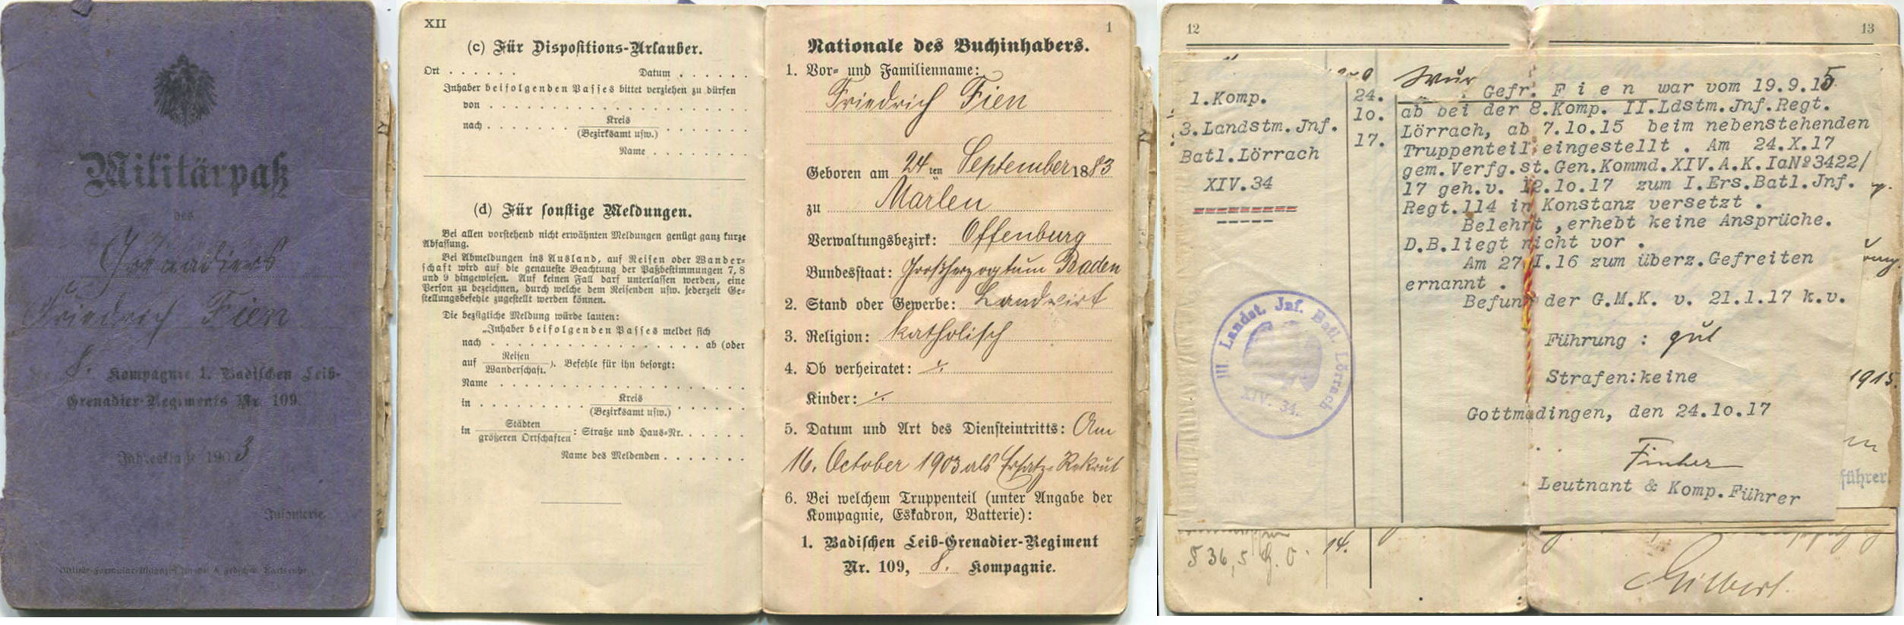 Militärpaß
des
Grenadiers
Friedrich Fien
der 8. Kompagnie 1. Badischen Leib-
Grenadier-Regiments Nr 109.
Jahresklasse 1903
Infanterie.
XII
(c) Für Dispositions-Urlauber.
Ort . . . . . . Datum . . . . . .
Inhaber beifolgenden Passes bittet verziehen zu dürfen
von
nach Kreis
(Bezirksamt usw.)
Name
(d) Für sonstige Meldungen.
Bei allen vorstehend nicht erwähnten Meldungen genügt ganz kurze
Abfassung.
Bei Abmeldungen ins Ausland, auf Reisen oder Wander-
schaft wird auf die genaueste Beachtung der Paßbestimmungen 7, 8
und 9 hingewiesen. Auf keinen Fall darf unterlassen werden, eine
Person zu bezeichnen, durch welche dem Reisenden usw. jederzeit Ge-
stellungsbefehle zugestellt werden können.
Die bezügliche Meldung würde lauten:
„Inhaber beifolgenden Passes meldet sich
nach . . . . . . ab (oder
auf Reisen
Wanderschaft.). Befehle für ihn besorgt:
Name
in Kreis
(Bezirksamt usw.)
in Städten
größeren Ortschaften: Straße und Haus-Nr.
Name des Meldenden
1
Nationale des Buchinhabers.
1. Vor- und Familienname:
Friedrich Fien
Geboren am 24ten September 1883
zu Marlen
Verwaltungsbezirk: Offenburg
Bundesstaat: Großherzogtum Baden
2. Stand oder Gewerbe: Landwirt
3. Religion: katholisch
4. Ob verheiratet: ./.
Kinder: ./.
5. Datum und Art des Diensteintritts: Am
16. October 1903 als Ersatz-Rekrut
6. Bei welchem Truppenteil (unter Angabe der
Kompagnie, Eskadron, Batterie):
1. Badischen Leib-Grenadier-Regiment
Nr. 109, 8. Kompagnie.
12
13
1.Komp.
3.Landstm.Jnf.
Batl.Lörrach
XIV.34
24.
10.
17.
Gefr. Fien war vom 19.9.15
ab bei der 8.Komp. II.Ldstm.Jnf.Regt.
Lörrach, ab 7.10.15 beim nebenstehenden
Truppenteil eingestellt . Am 24.X.17
gem.Verfg.st.Gen.Kommd.XIV.A.K.IaNº3422/
17 geh.v. 12.10.17 zum I.Ers.Batl.Jnf.
Regt.114 in Konstanz versetzt .
Belehrt ,erhebt keine Ansprüche.
D.B.liegt nicht vor .
Am 27.I.16 zum überz.Gefreiten
ernannt .
Befund der G.M.K. v. 21.1.17 k.v.
Führung : gut
Strafen:keine
Gottmadingen, den 24.10.17
Leutnant & Komp.Führer
III Landst. Jnf. Batl. Lörrach
XIV. 34.
1915.
führer.
14.